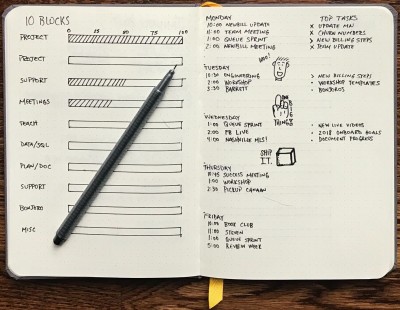 10 BLOCKS
0 25 50 75 100
PROJECT
PROJECT
SUPPORT
MEETINGS
TEACH
DATA/SQL
PLAN/DOC
SUPPORT
BONJORO
MISC
MONDAY
10:00 NEWBILL UPDATE
11:00 TEAM MEETING
1:00 QUEUE SPRINT
2:00 NEWBILL MEETING
TOP TASKS
X UPDATE MTN
X CHURN NUMBERS
X NEW BILLING STEPS
X TEAM UPDATE
TUESDAY
10:30 ENGINEERING
2:00 WORKSHOP
3:30 BARRETT
> NEW BILLING STEPS
WORKSHOP
BONJOROS
THINGS
WEDNESDAY
1:00 QUEUE SPRINT
2:00 FB LIVE
4:00 NASHVILLE MLS!
NEW LIVE VIDEOS
2018 ONBOARD GOALS
DOCUMENT PROGRESS
SHIP
IT.
THURSDAY
SUCCESS MEETING
1:00 WORKSHOP
2:30 PICKUP CANAAN
FRIDAY
10:00 BOOK CLUB
11:00 STEVEN
1:00 QUEUE SPRINT
5:00 REVIEW WEEK